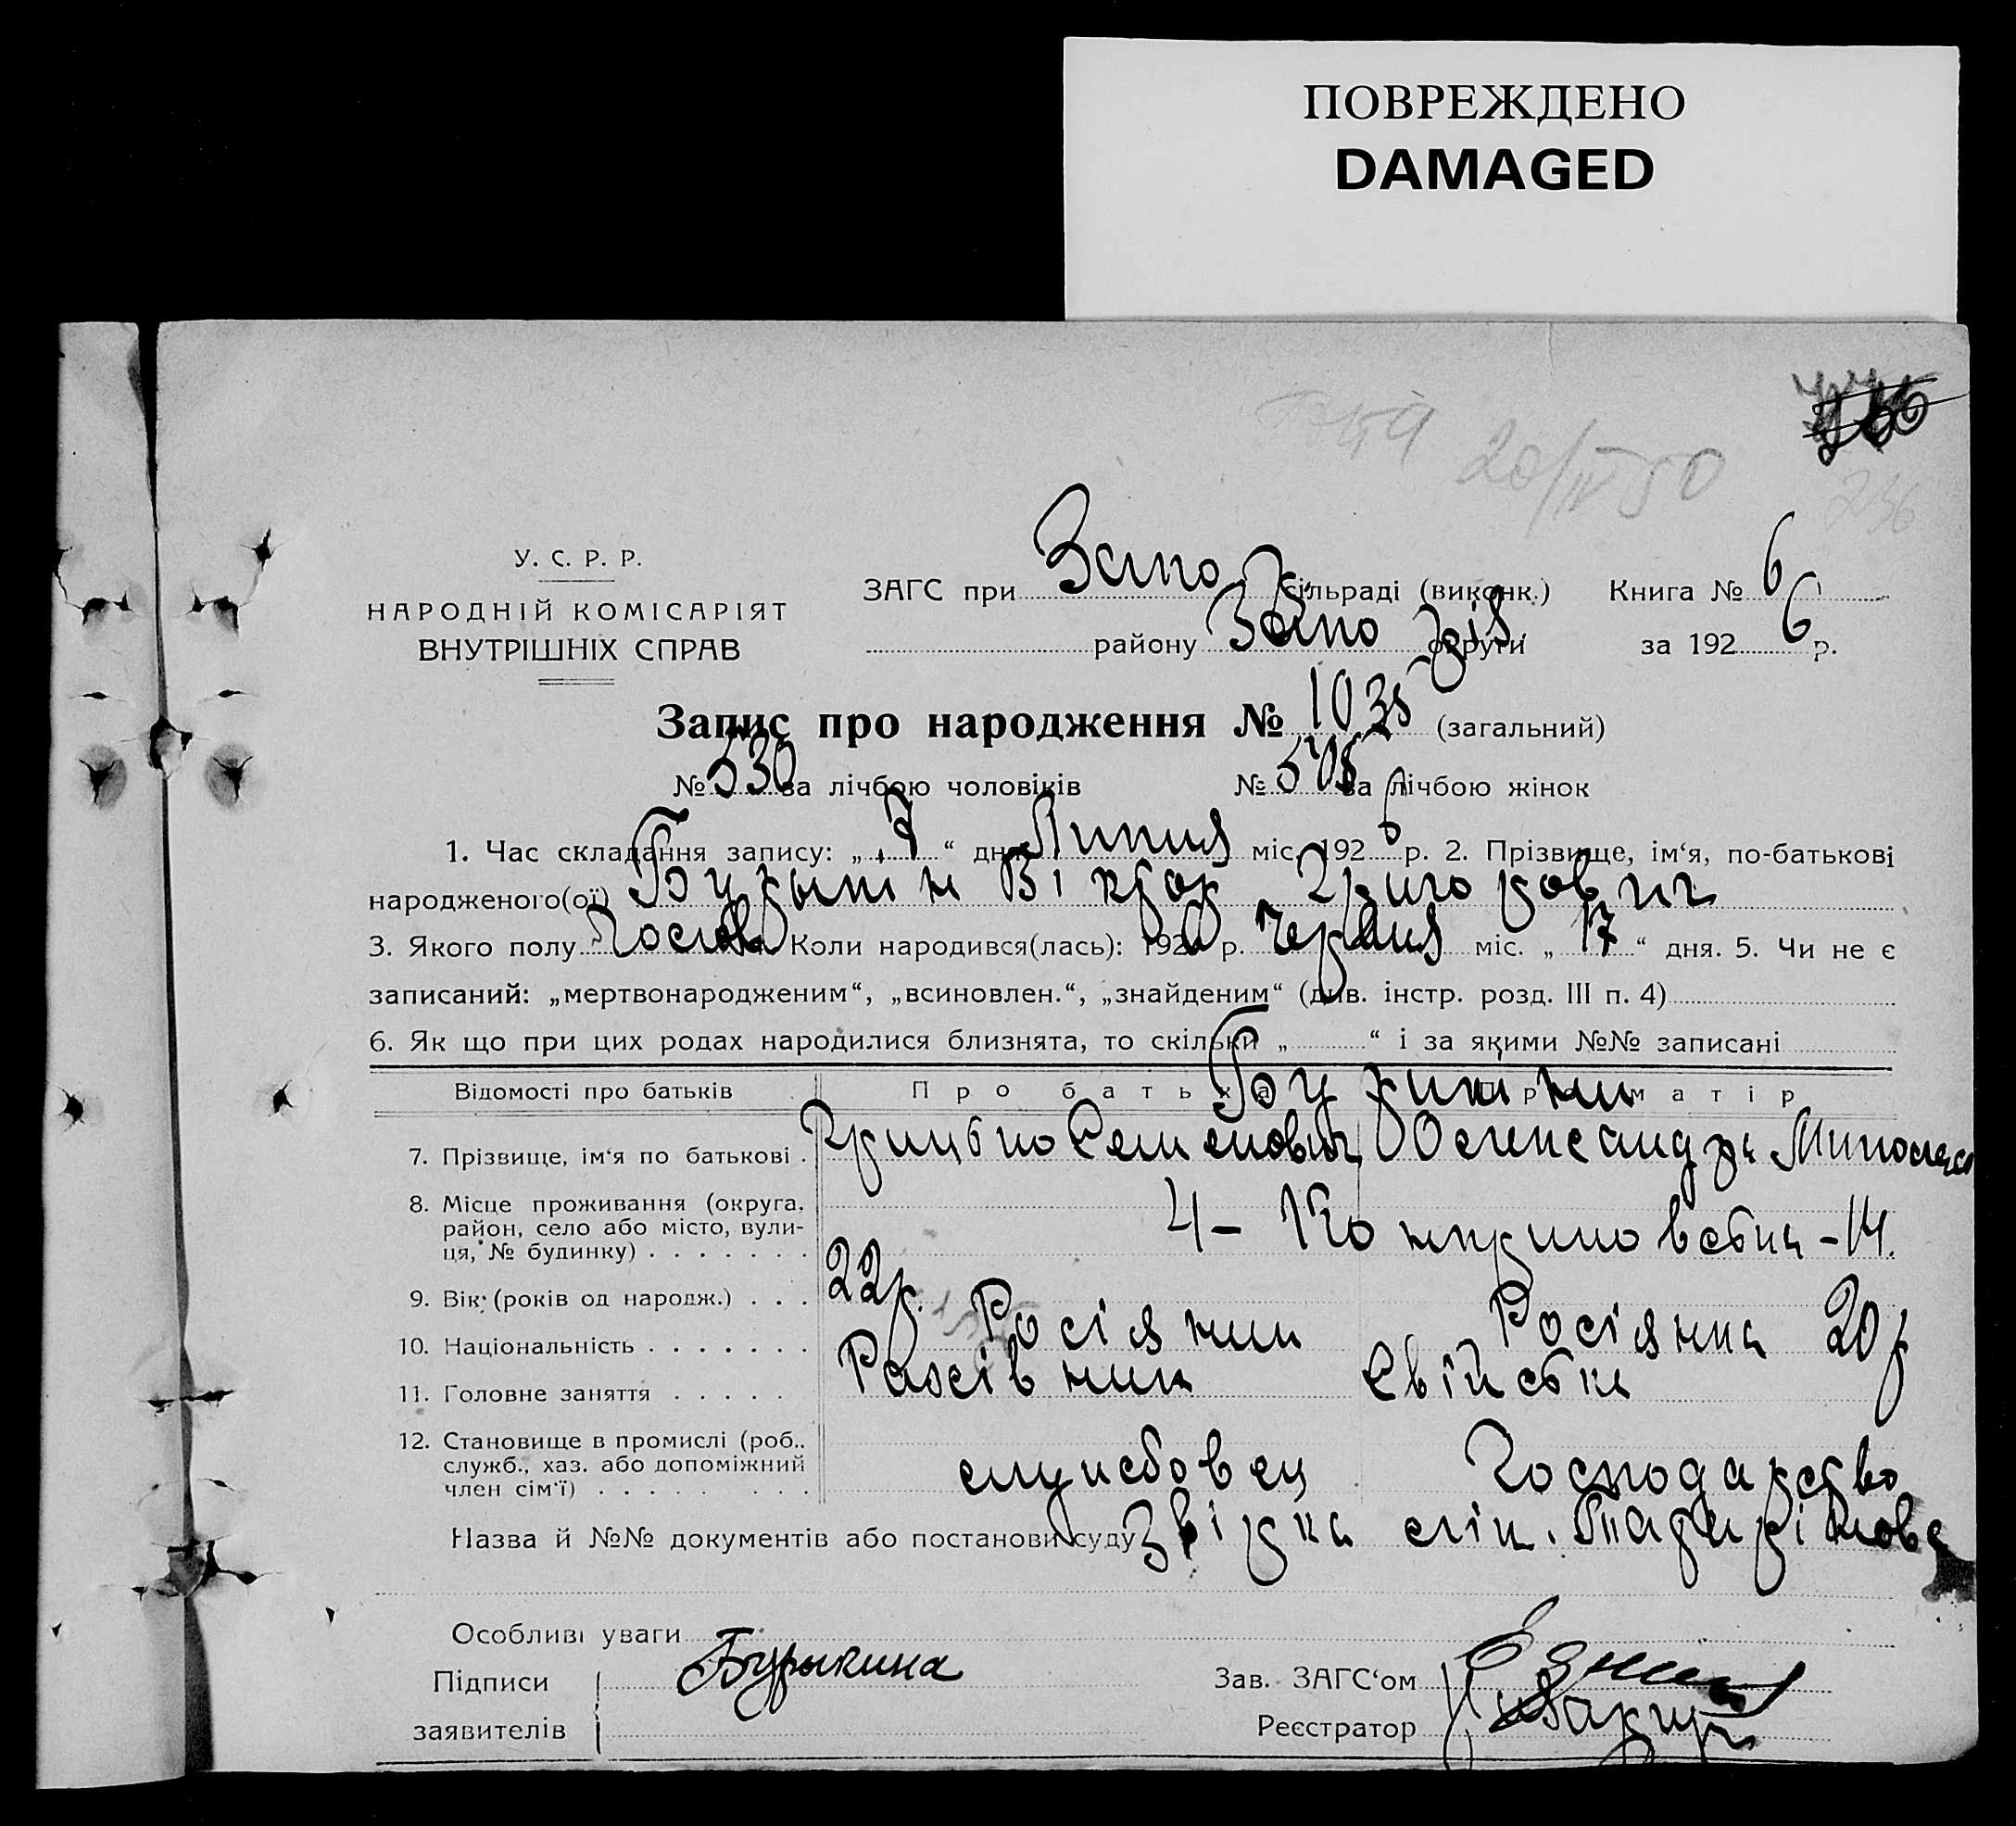 ПОВРЕЖДЕНО
DAMAGED
20/IV 50
236
У. С. Р. Р.
НАРОДНІЙ КОМІСАРІЯТ
ВНУТРІШНІХ СПРАВ
ЗАГС при Запо сільраді (виконк.) Книга № 6
району Запо різ. округи за 1926 р.
Запис про народження № 1035 (загальний)
№ 530 за лічбою чоловіків № 505 за лічбою жінок
1. Час складання запису: „ 7 “ дня Липня міс. 1926 р. 2. Прізвище, ім‘я, по-батькові
народженого(ої) Бурыкін Віктор Григорович
3. Якого полу Чолов Коли народився(лась): 1926 р. Червня міс. „ 17 “ дня. 5. Чи не є
записаний: „мертвонародженим“, „всиновлен.“, „знайденим“ (див. інстр. розд. III п. 4)
6. Як що при цих родах народилися близнята, то скільки „ “ і за якими №№ записані
Відомості про батьків Про батька Про матір
Бурикіни
7. Прізвище, ім‘я по батькові . Грицько Семенович Олександра Микола
8. Місце проживання (округа,
район, село або місто, вули-
ця, № будинку) . . . . . . . 4 - - 14.
9. Вік (років од народж.) . . . 22 р. 20 р
10. Національність . . . . . . . Росіянин Росіянка
11. Головне заняття . . . . . Рахівник Свійська
12. Становище в промислі (роб.,
служб., хаз. або допоміжний
член сім‘ї) . . . . . . . . . службовец Господарство
Назва й №№ документів або постанови суду Звірка
Особливі уваги
Підписи Бурыкина Зав. ЗАГС‘ом
заявителів Реєстратор